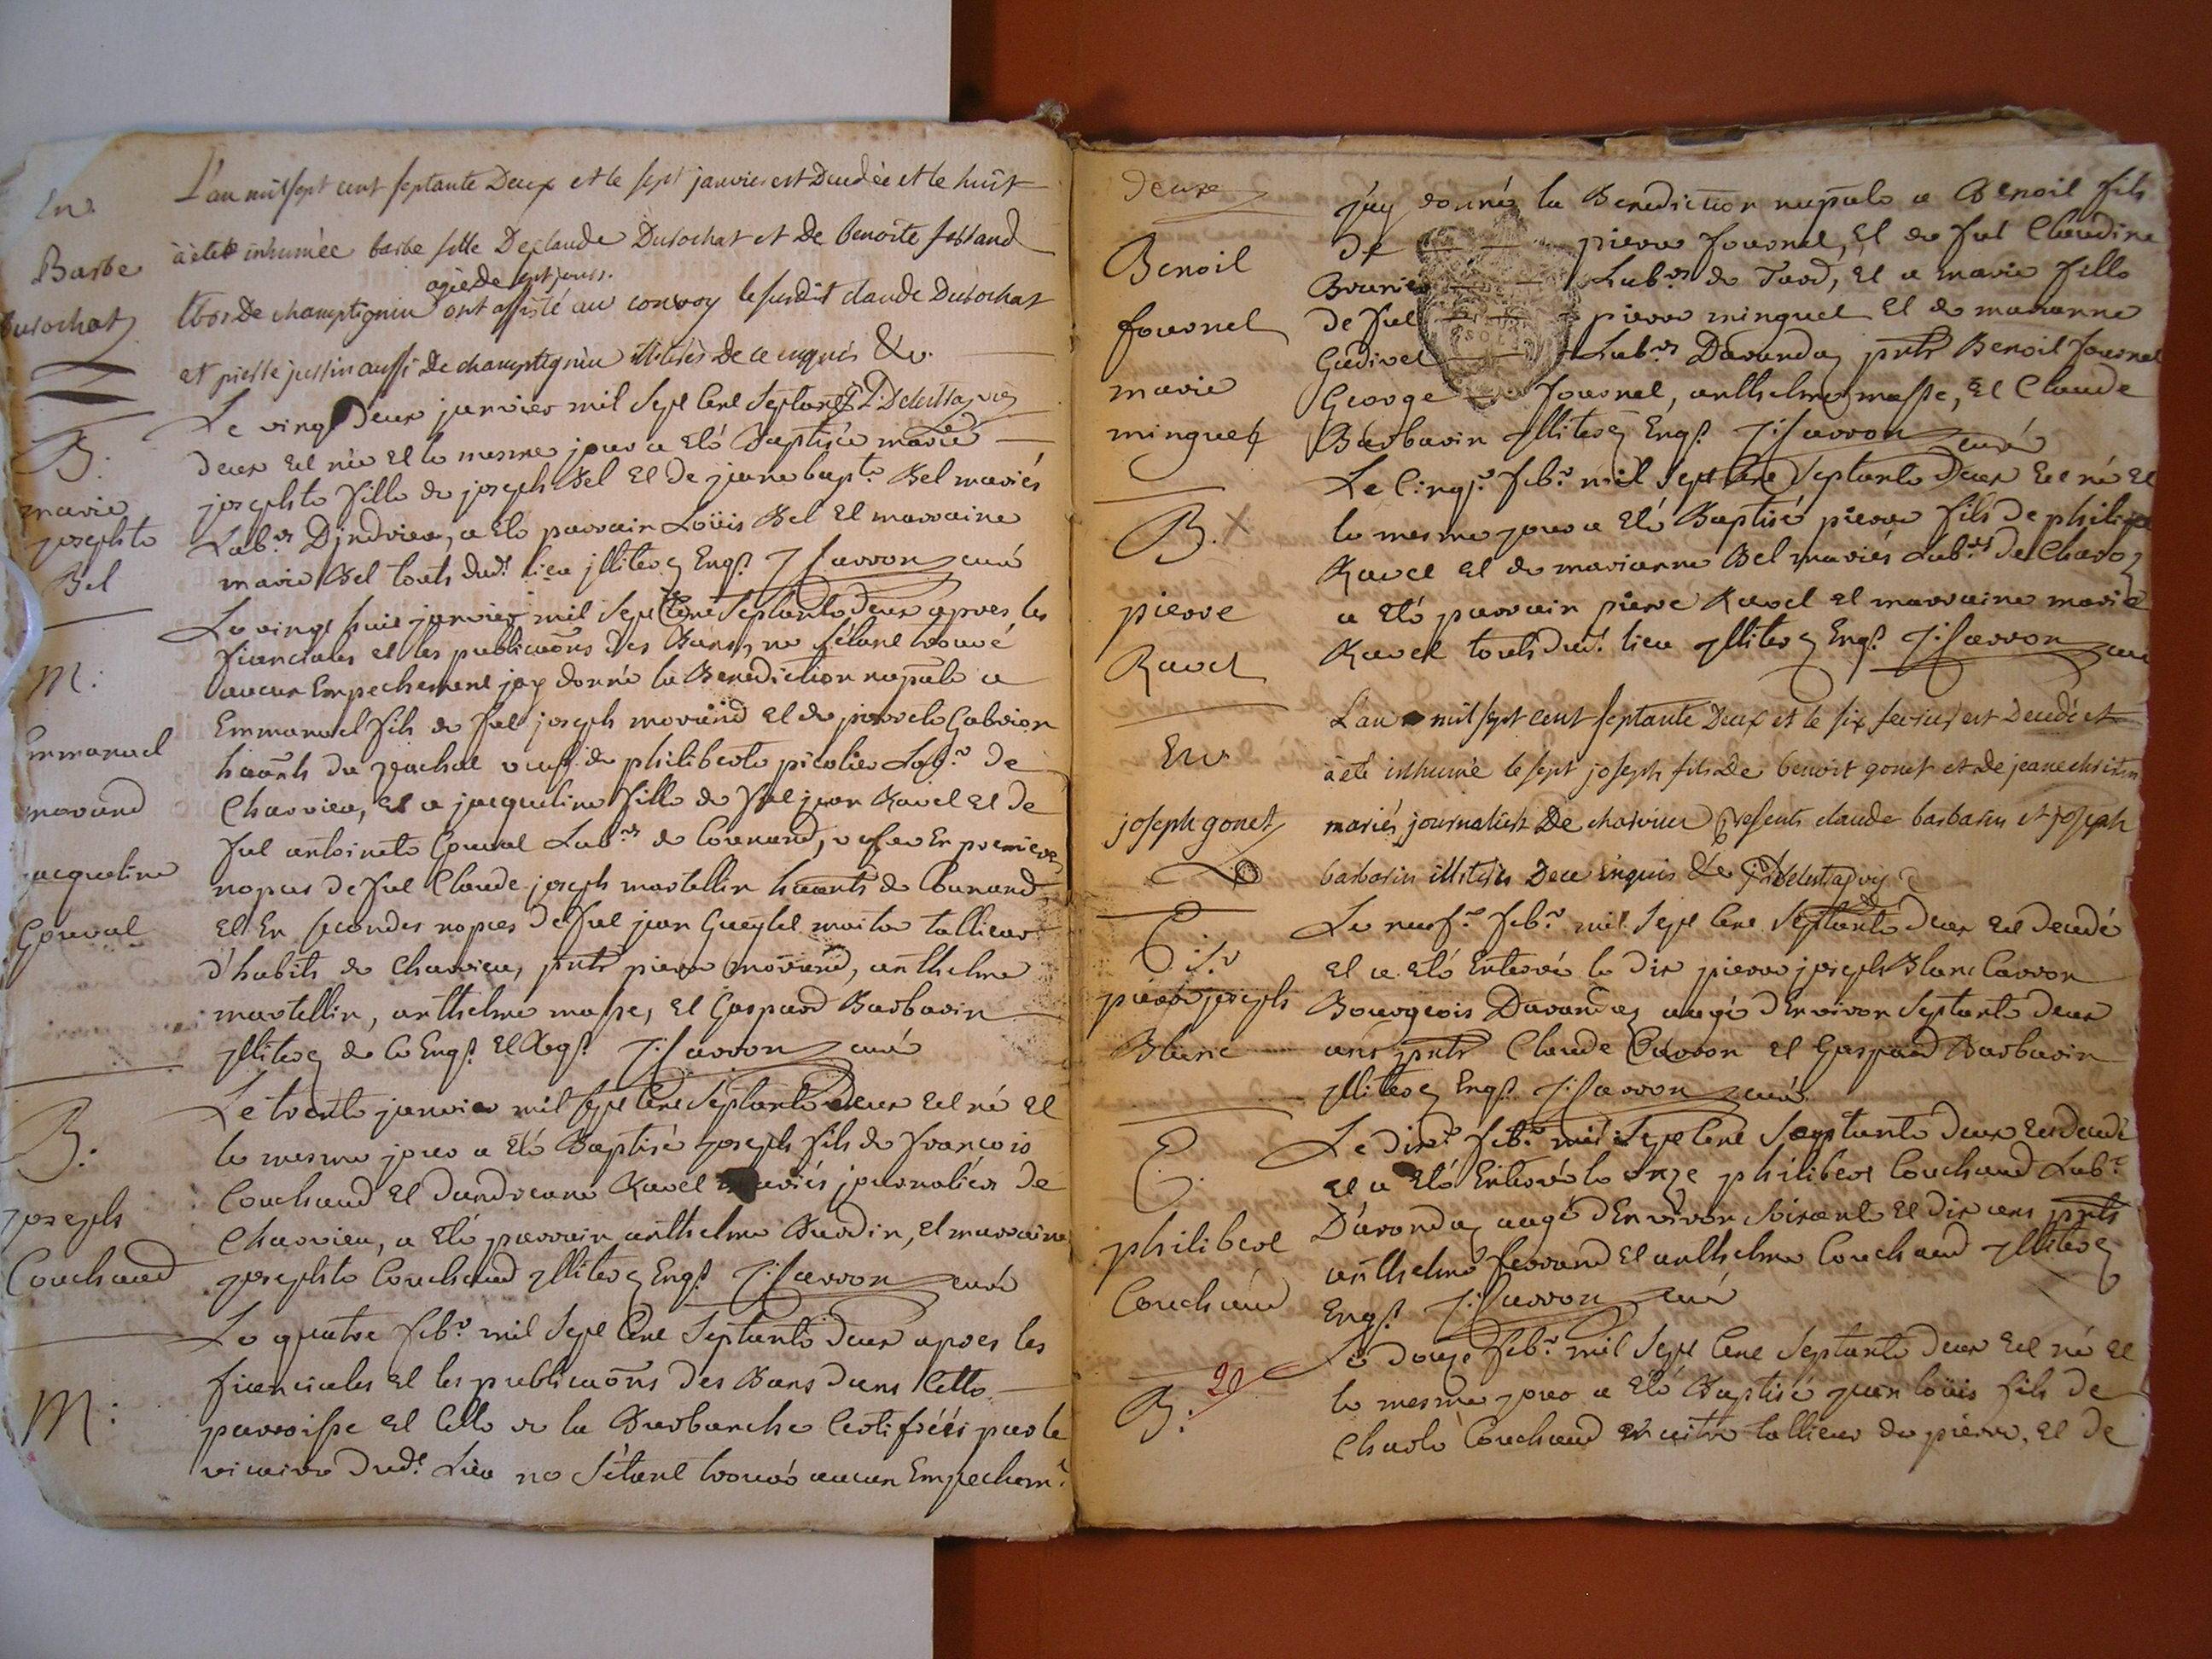 En.
Barbe
durochat
L'an mil sept cent septante Deux et le sept janvier est Decedée et le huit
à été inhumée barbe fille De claude Durochat et de benoite ferrand
agée de sept jours.
lbos De champtignin ont assisté au convoy le susdit claude Durochat
et pierre justin aussi De champtignin illiterés De ce enquis &c.
B.
marie
josephte
Bel
Le vingt Deux janvier mil sept Cent Septante
deux est née et le mesme jour a eté Baptisée marie
josephte fille de joseph Bel et de jeane bapt.e Bel mariés
Lab.rs D'jndrieu, a eté parrain Loüis Bel et marraine
marie Bel touts dud.t lieu jlliterez Enq.s J: Carron curé
M:
Emmanuel
morand
jacqueline
Gouval
Le vingt huit janvier mil Sept Cent Septante deux apres les
fiancialles et les publicaõns des Bans, ne s'étant trouvé
aucun Empechement jay donné la Benediction nupãle a
Emmanuel fils de feu joseph morand et de pierrete Gabrion
haãnts du veuf de philiberte picolier Lab.r de
Charvieu, et a jacqueline fille de feu jean Ravel et de
feue antoinete Gouval Lab.rs de Courand, vefve En premieres
nopces de feu Claude joseph martellin haãnts de Counand
et En secondes nopces de feu jean Gueytel maitre tallieur
d'habits de Charvieu, pnts pierre morand, anthelme
martellin, anthelme masse, et Gaspard Barbarin
jlliterez de Ce Enq.s et Reqs. J: Carron curé
B:
joseph
Couchaud
Le trente janvier mil sept Cent Septante deux est né et
le mesme jour a eté Baptisé joseph fils de françois
Couchaud et d'andreane Ravel mariés journaliers de
Charvieu, a eté parrain anthelme Burdin, et marraine
josephte Couchaud jlliterez Enq.s J: Carron curé
M:
Le quatre feb.r mil Sept Cent Septante deux apres les
fiancialles et les publicaõns des Bans dans Cette
parroisse et Celle de la Burbanche Certifiées par le
vicaire dud.t Lieu ne s'étant trouvé aucun Empechem.t
deuxe
Benoit
fournel
marie
minguet
jay donné la Benediction nupãle a Benoit fils
de pierre fournel, et de feue Claudine
Brunier Lab.rs de Tard, et a marie fille
de feu pierre minguet et de marianne
Gudivel Lab.rs Davandaz pnts Benoit fournel
George fournel, anthelme masse, et Claude
Barbarin jlliterez Enq.s J: Carron curé
B. X
pierre
Ravel
Le Cinq.e feb.r mil Sept Cent Septante Deux est né et
le mesme jour a eté Baptisé pierre fils de philipe
Ravel et de marianne Bel mariés Lab.rs de Charoz
a eté parrain pierre Ravel et marraine marie
Ravel touts dud.t lieu jlliterez Enq.s J: Carron curé
En.
joseph gonet
L'an mil sept cent septante Deux et le six fevrier est Decedé et
à été inhumé le sept joseph fils De benoit gonet et de jeane
mariés journaliers De charvieu presents claude barbarin et joseph
barbarin illiterés De ce enquis &c
E.
S.r
pierre joseph
Blanc
Le neuf.e feb.r mil Sept Cent Septante deux est decedé
et a eté Enterré le dix pierre joseph Blanc Carron
Bourgeois Davandaz aagé d'Environ Septante deux
ans pnts Claude Carron et Gaspard Barbarin
jlliterez Enq.s J: Carron curé
E.
philibert
Couchaud
Le dix.e feb.r mil Sept Cent Septante deux est decedé
et a eté Enterré le onze philibert Couchaud Lab.r
D'avandaz aagé d'Environ Soixante et dix ans pnts
anthelme ferrand et anthelme Couchaud jlliterez
Enq.s J: Carron curé
B. 20
Le douze feb.r mil Sept Cent Septante deux est né et
le mesme jour a eté Baptisé jean loüis fils de
Charle Couchaud maitre tallieur de pierre, et de